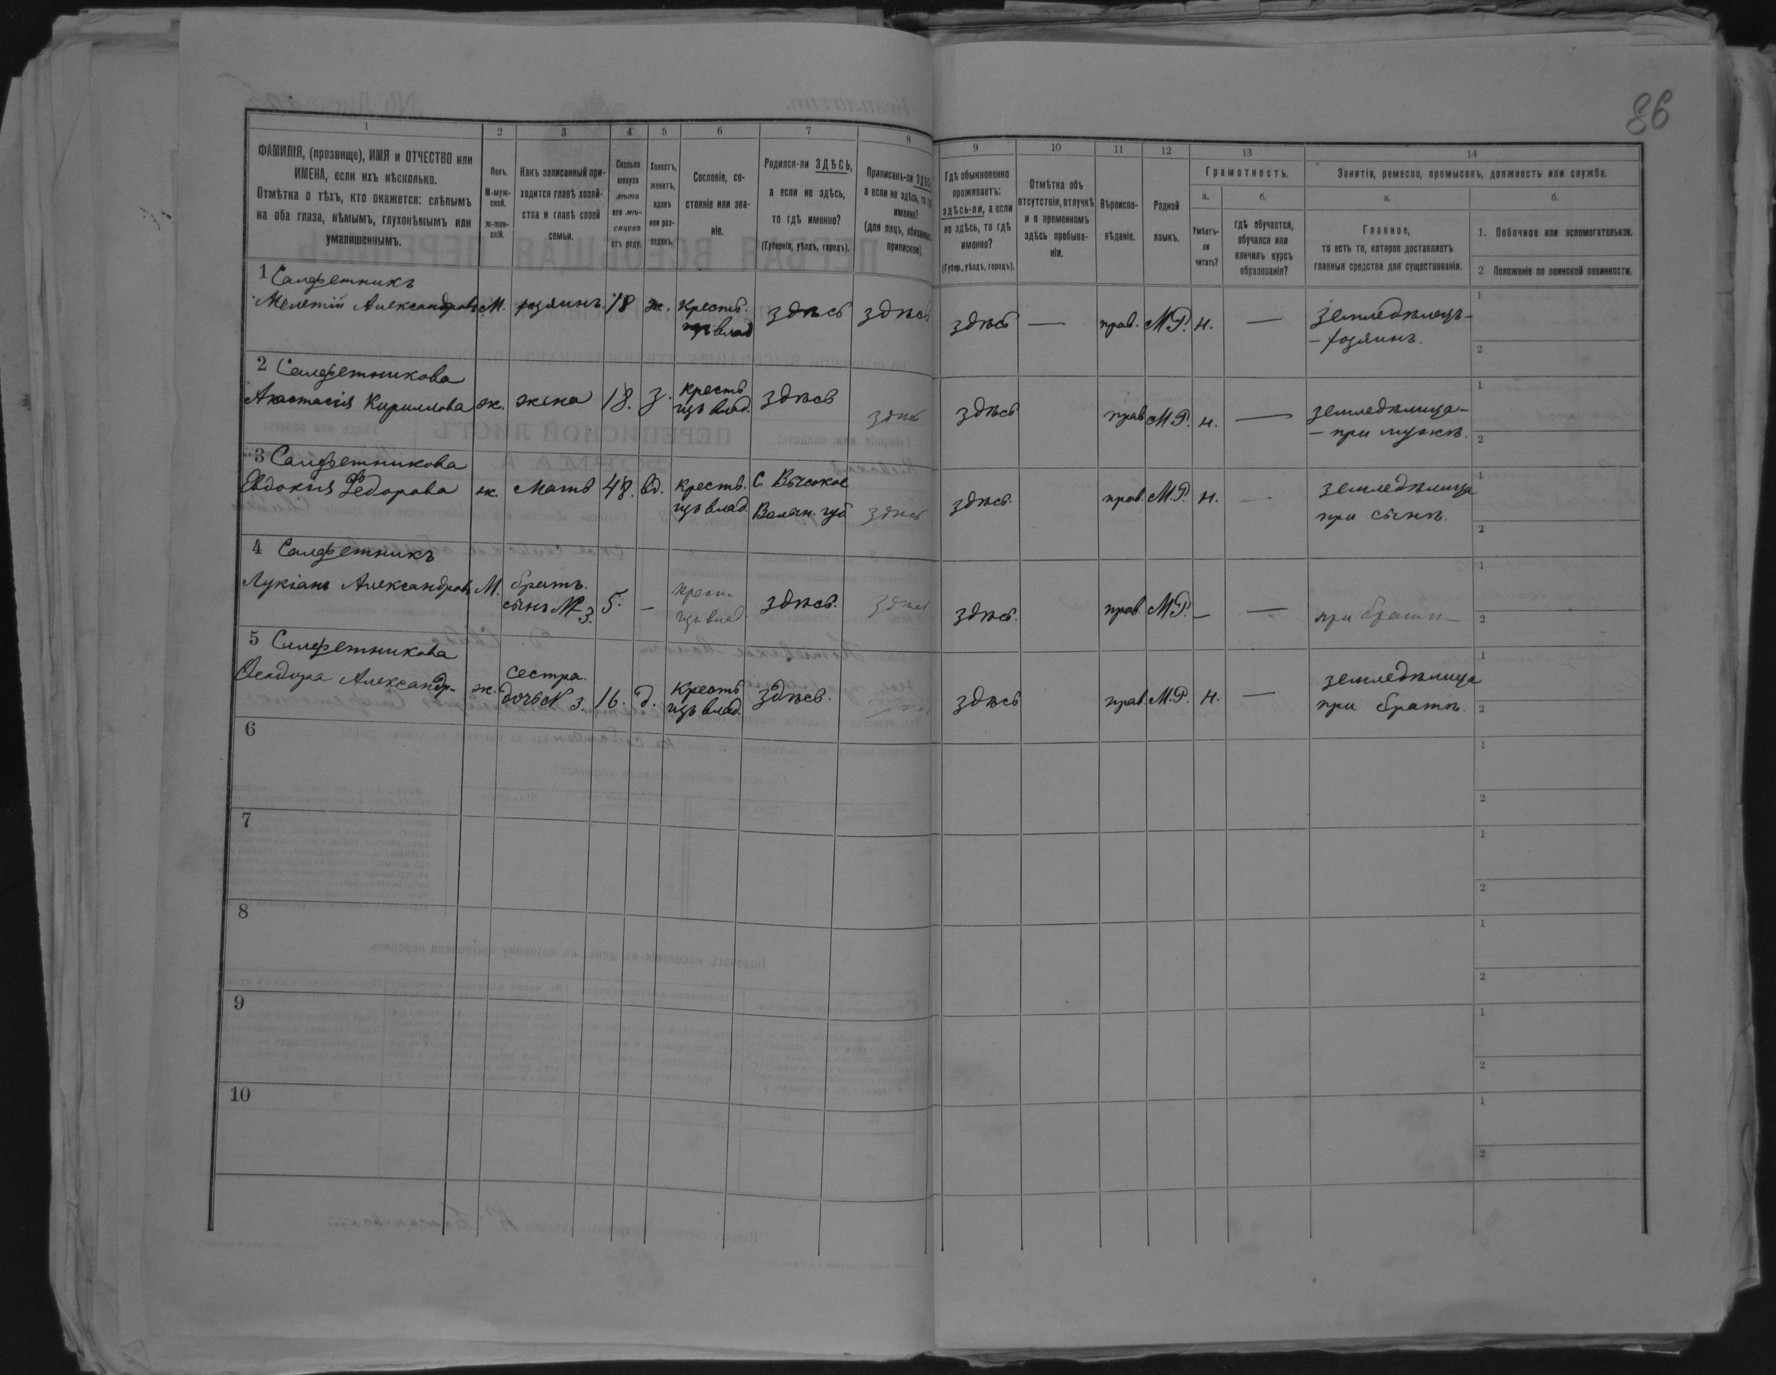 86
1
2
3
4
5
6
7
8
9
10
11
12
13
14
ФАМИЛІЯ, (прозвище), ИМЯ и ОТЧЕСТВО или
ИМЕНА, если ихъ нѣсколько.
Отмѣтка о тѣхъ, кто окажется: слѣпымъ
на оба глаза, нѣмымъ, глухонѣмымъ или
умалишеннымъ.
Полъ.
М-муж-
ской.
ж-жен-
скій.
Какъ записанный при-
ходится главѣ хозяй-
ства и главѣ своей
семьи.
Сколько
минуло
лѣтъ
или мѣ-
сяцевъ
отъ роду.
Холостъ,
женатъ,
вдовъ
или раз-
веденъ.
Сословіе, со-
стояніе или зва-
ніе.
Родился-ли ЗДѢСЬ,
а если не здѣсь,
то гдѣ именно?
(Губернія, уѣздъ, городъ).
Приписанъ-ли
а если не здѣсь, то гдѣ
именно?
(для лицъ, обязанныхъ
припиской).
Гдѣ обыкновенно
проживаетъ:
здѣсь-ли, а если
не здѣсь, то гдѣ
именно?
(Губер., уѣздъ, городъ).
Отмѣтка объ
отсутствіи, отлучкѣ
и о временномъ
здѣсь пребыва-
ніи.
Вѣроиспо-
вѣданіе.
Родной
языкъ.
Грамотность.
а.
Умѣетъ-
ли
читать?
б.
гдѣ обучается,
обучался или
кончилъ курсъ
образованія?
Занятіе, ремесло, промыселъ, должность или служба.
а.
Главное,
то есть то, которое доставляетъ
главныя средства для существованія.
б.
1. Побочное или вспомогательное.
2 Положеніе по воинской повинности.
1 Салфетникъ
Мелетій Александровъ М. хозяинъ. 18 ж. Крестъ. изъ влад здѣсь здѣсь здѣсь — прав. М.Р. н. — земледѣлецъ-
- хозяинъ.
1
2
2 Салфетникова
Анастасія Кириллова ж. жена 18. з. Крестъ изъ влад. здѣсь здѣсь здѣсь прав М.Р. н. — земледѣлица-
- при мужѣ.
1
2
3 Салфетникова
Евдокія Федорова ж. мать 48. вд. крестъ. изъ влад. С Высокое
Волын. губ здѣсь здѣсь. прав. М.Р. н. — земледѣлица
при сынѣ.
1
2
4 Салфетникъ
Лукіанъ Александровъ М. братъ.
сынъ № 3. 5. — крест. изъ влад. здѣсь. здѣсь здѣсь. прав. М.Р. — — при братѣ
1
2
5 Салфетникова
Ѳеодора Александр. ж. сестра.
дочь № 3. 16. д. Крестъ изъ влад. здѣсь. здѣсь прав. М.Р. н. — земледѣлица
при братѣ.
1
2
6
1
2
7
1
2
8
1
2
9
1
2
10
1
2